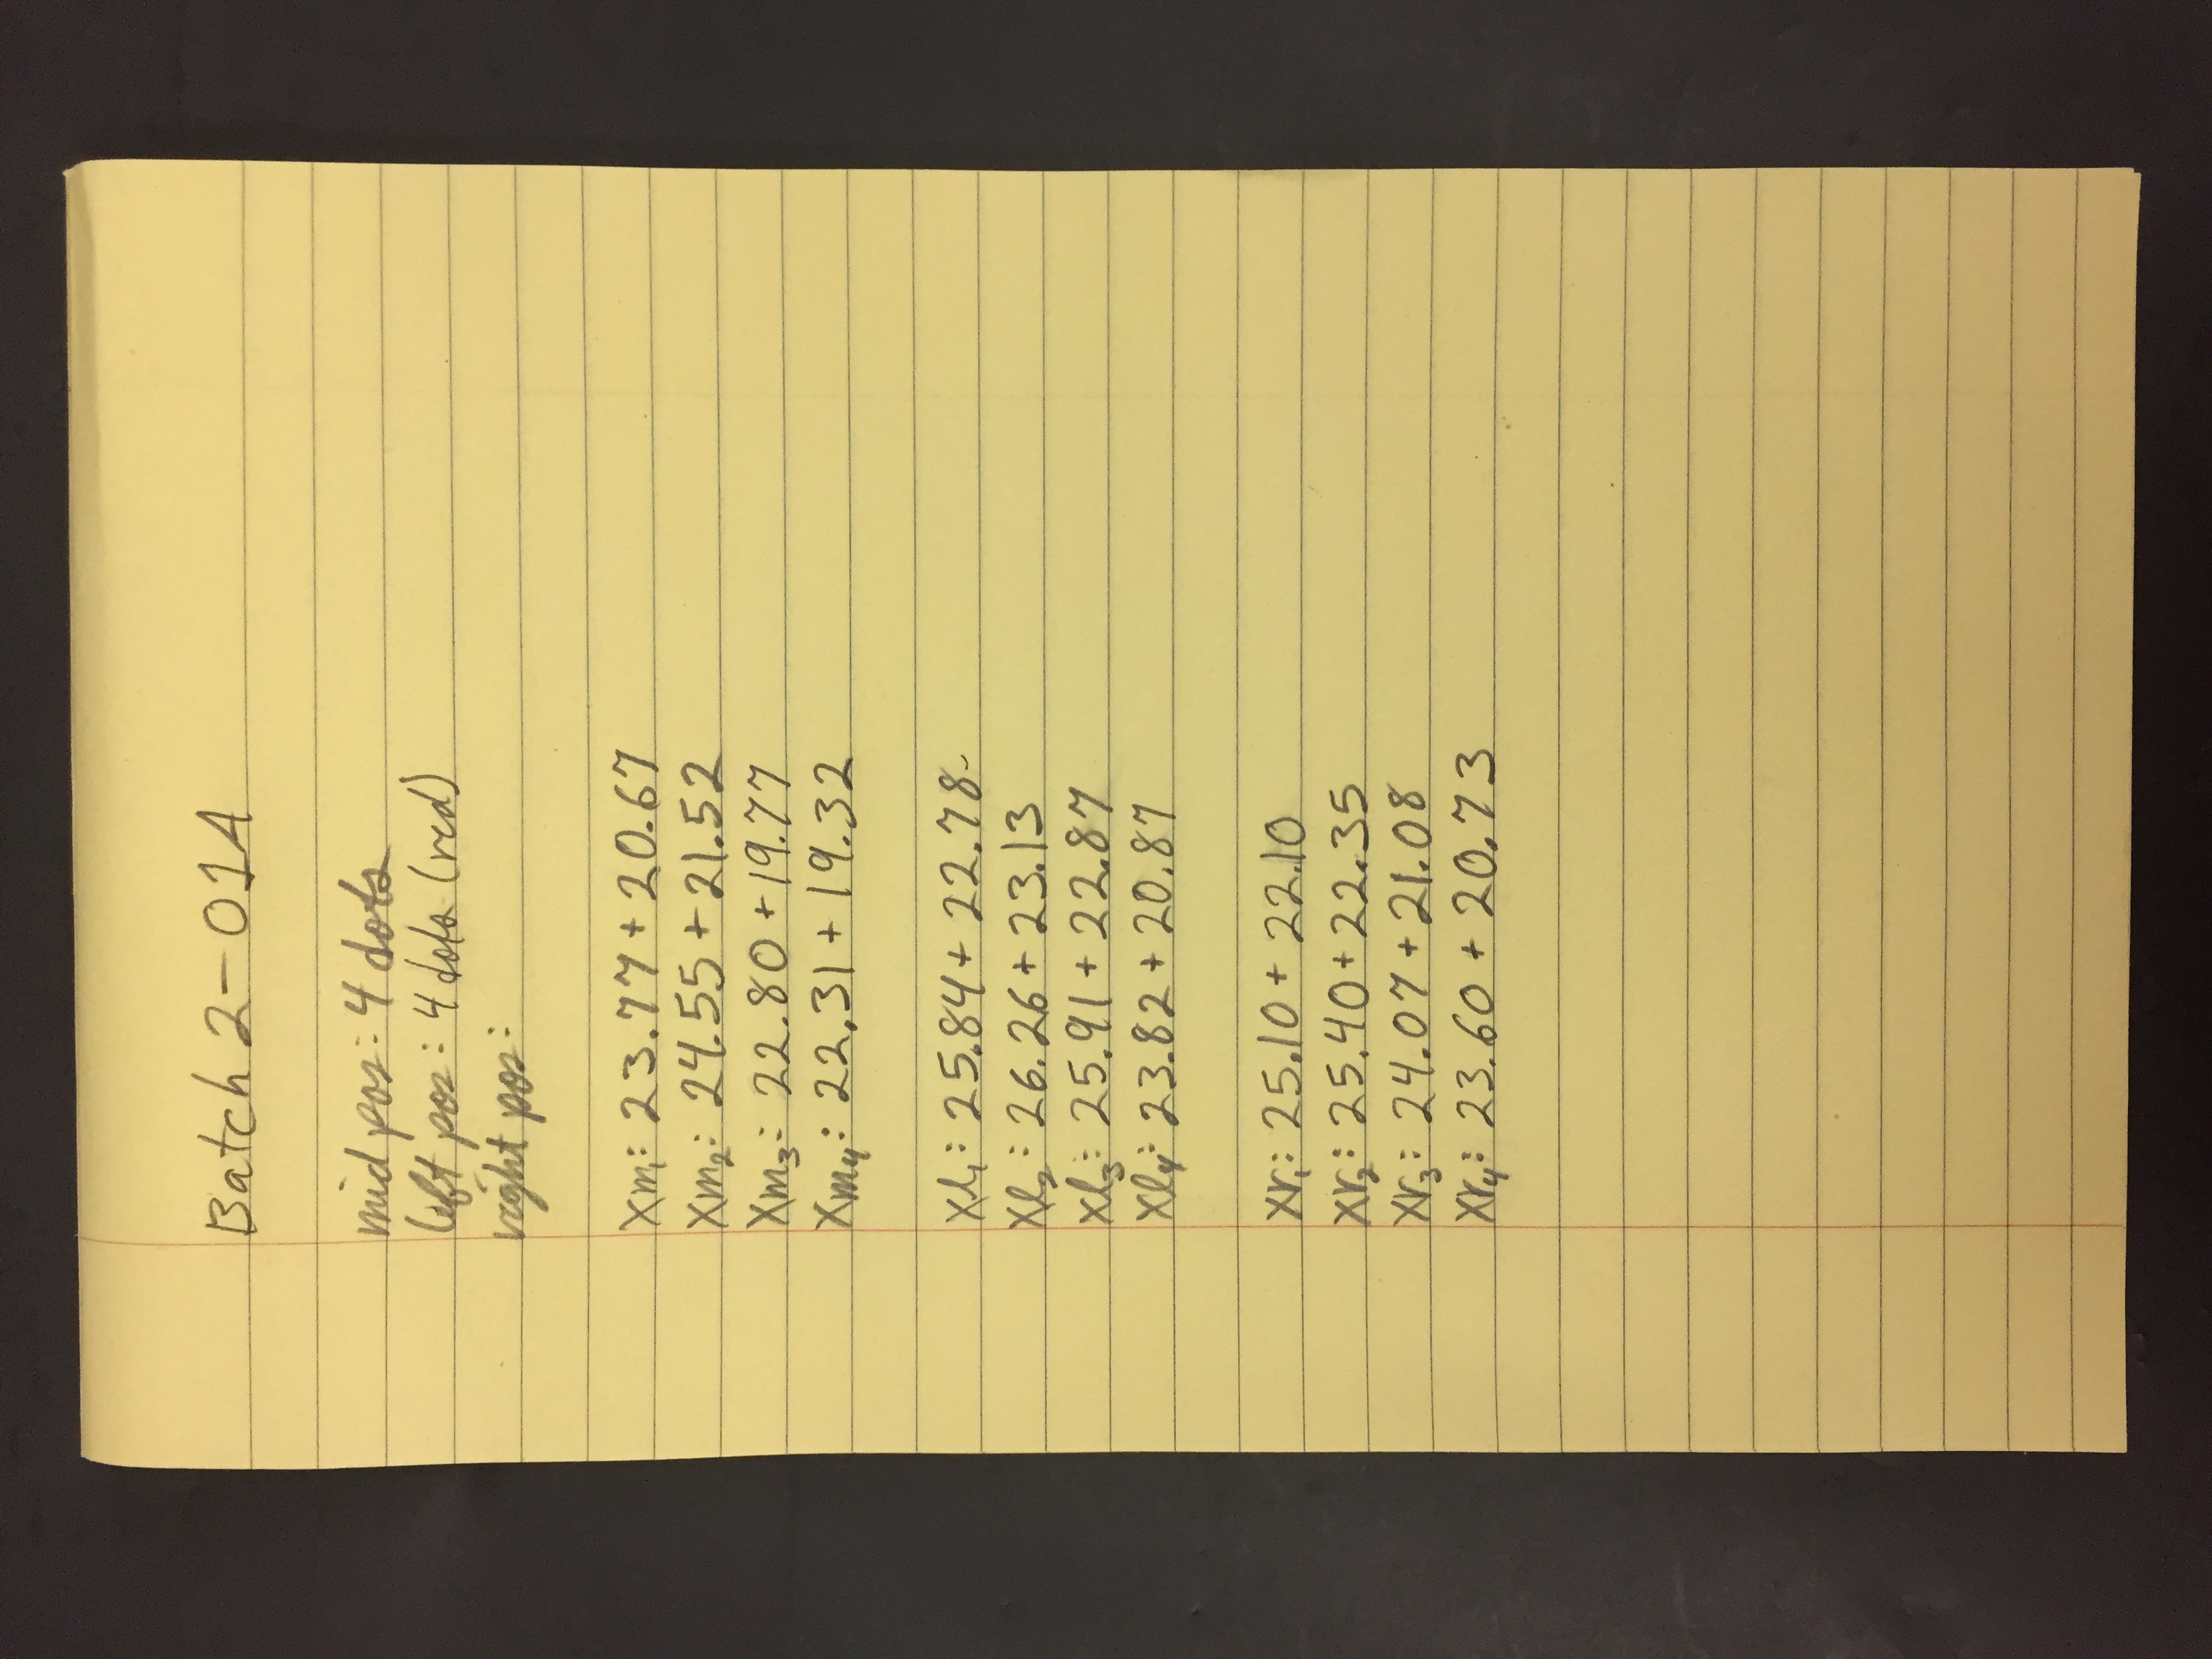 Batch 2-01A
mid pos: 4 dots
left pos: 4 dots (red)
right pos:
Xm₁: 23.77 + 20.67
Xm₂: 24.55 + 21.52
Xm₃: 22.80 + 19.77
Xm₄: 22.31 + 19.32
Xl₁: 25.84 + 22.78
Xl₂: 26.26 + 23.13
Xl₃: 25.91 + 22.87
Xl₄: 23.82 + 20.87
Xr₁: 25.10 + 22.10
Xr₂: 25.40 + 22.35
Xr₃: 24.07 + 21.08
Xr₄: 23.60 + 20.73